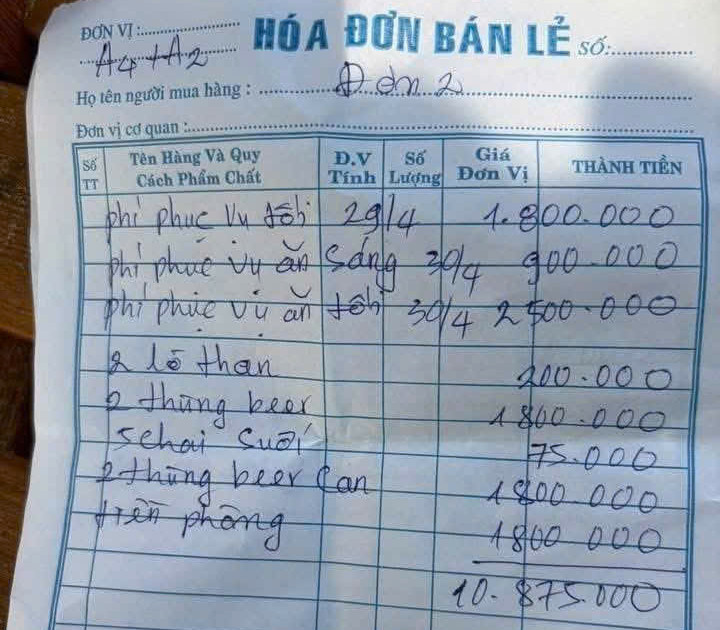 ĐƠN VỊ :
HÓA ĐƠN BÁN LẺ SỐ:
A4+A2
Họ tên người mua hàng : Đơn 2
Đơn vị cơ quan :
Số TT Tên Hàng Và Quy Cách Phẩm Chất Đ.V Tính Số Lượng Giá Đơn Vị THÀNH TIỀN
phí phục vụ tối 29/4 1.800.000
phí phục vụ ăn sáng 30/4 900.000
phí phục vụ ăn tối 30/4 2500.000
2 lò than 200.000
2 thùng beer 1800.000
5chai suối 75.000
2 thùng beer can 1800 000
tiền phòng 1800 000
10.875.000